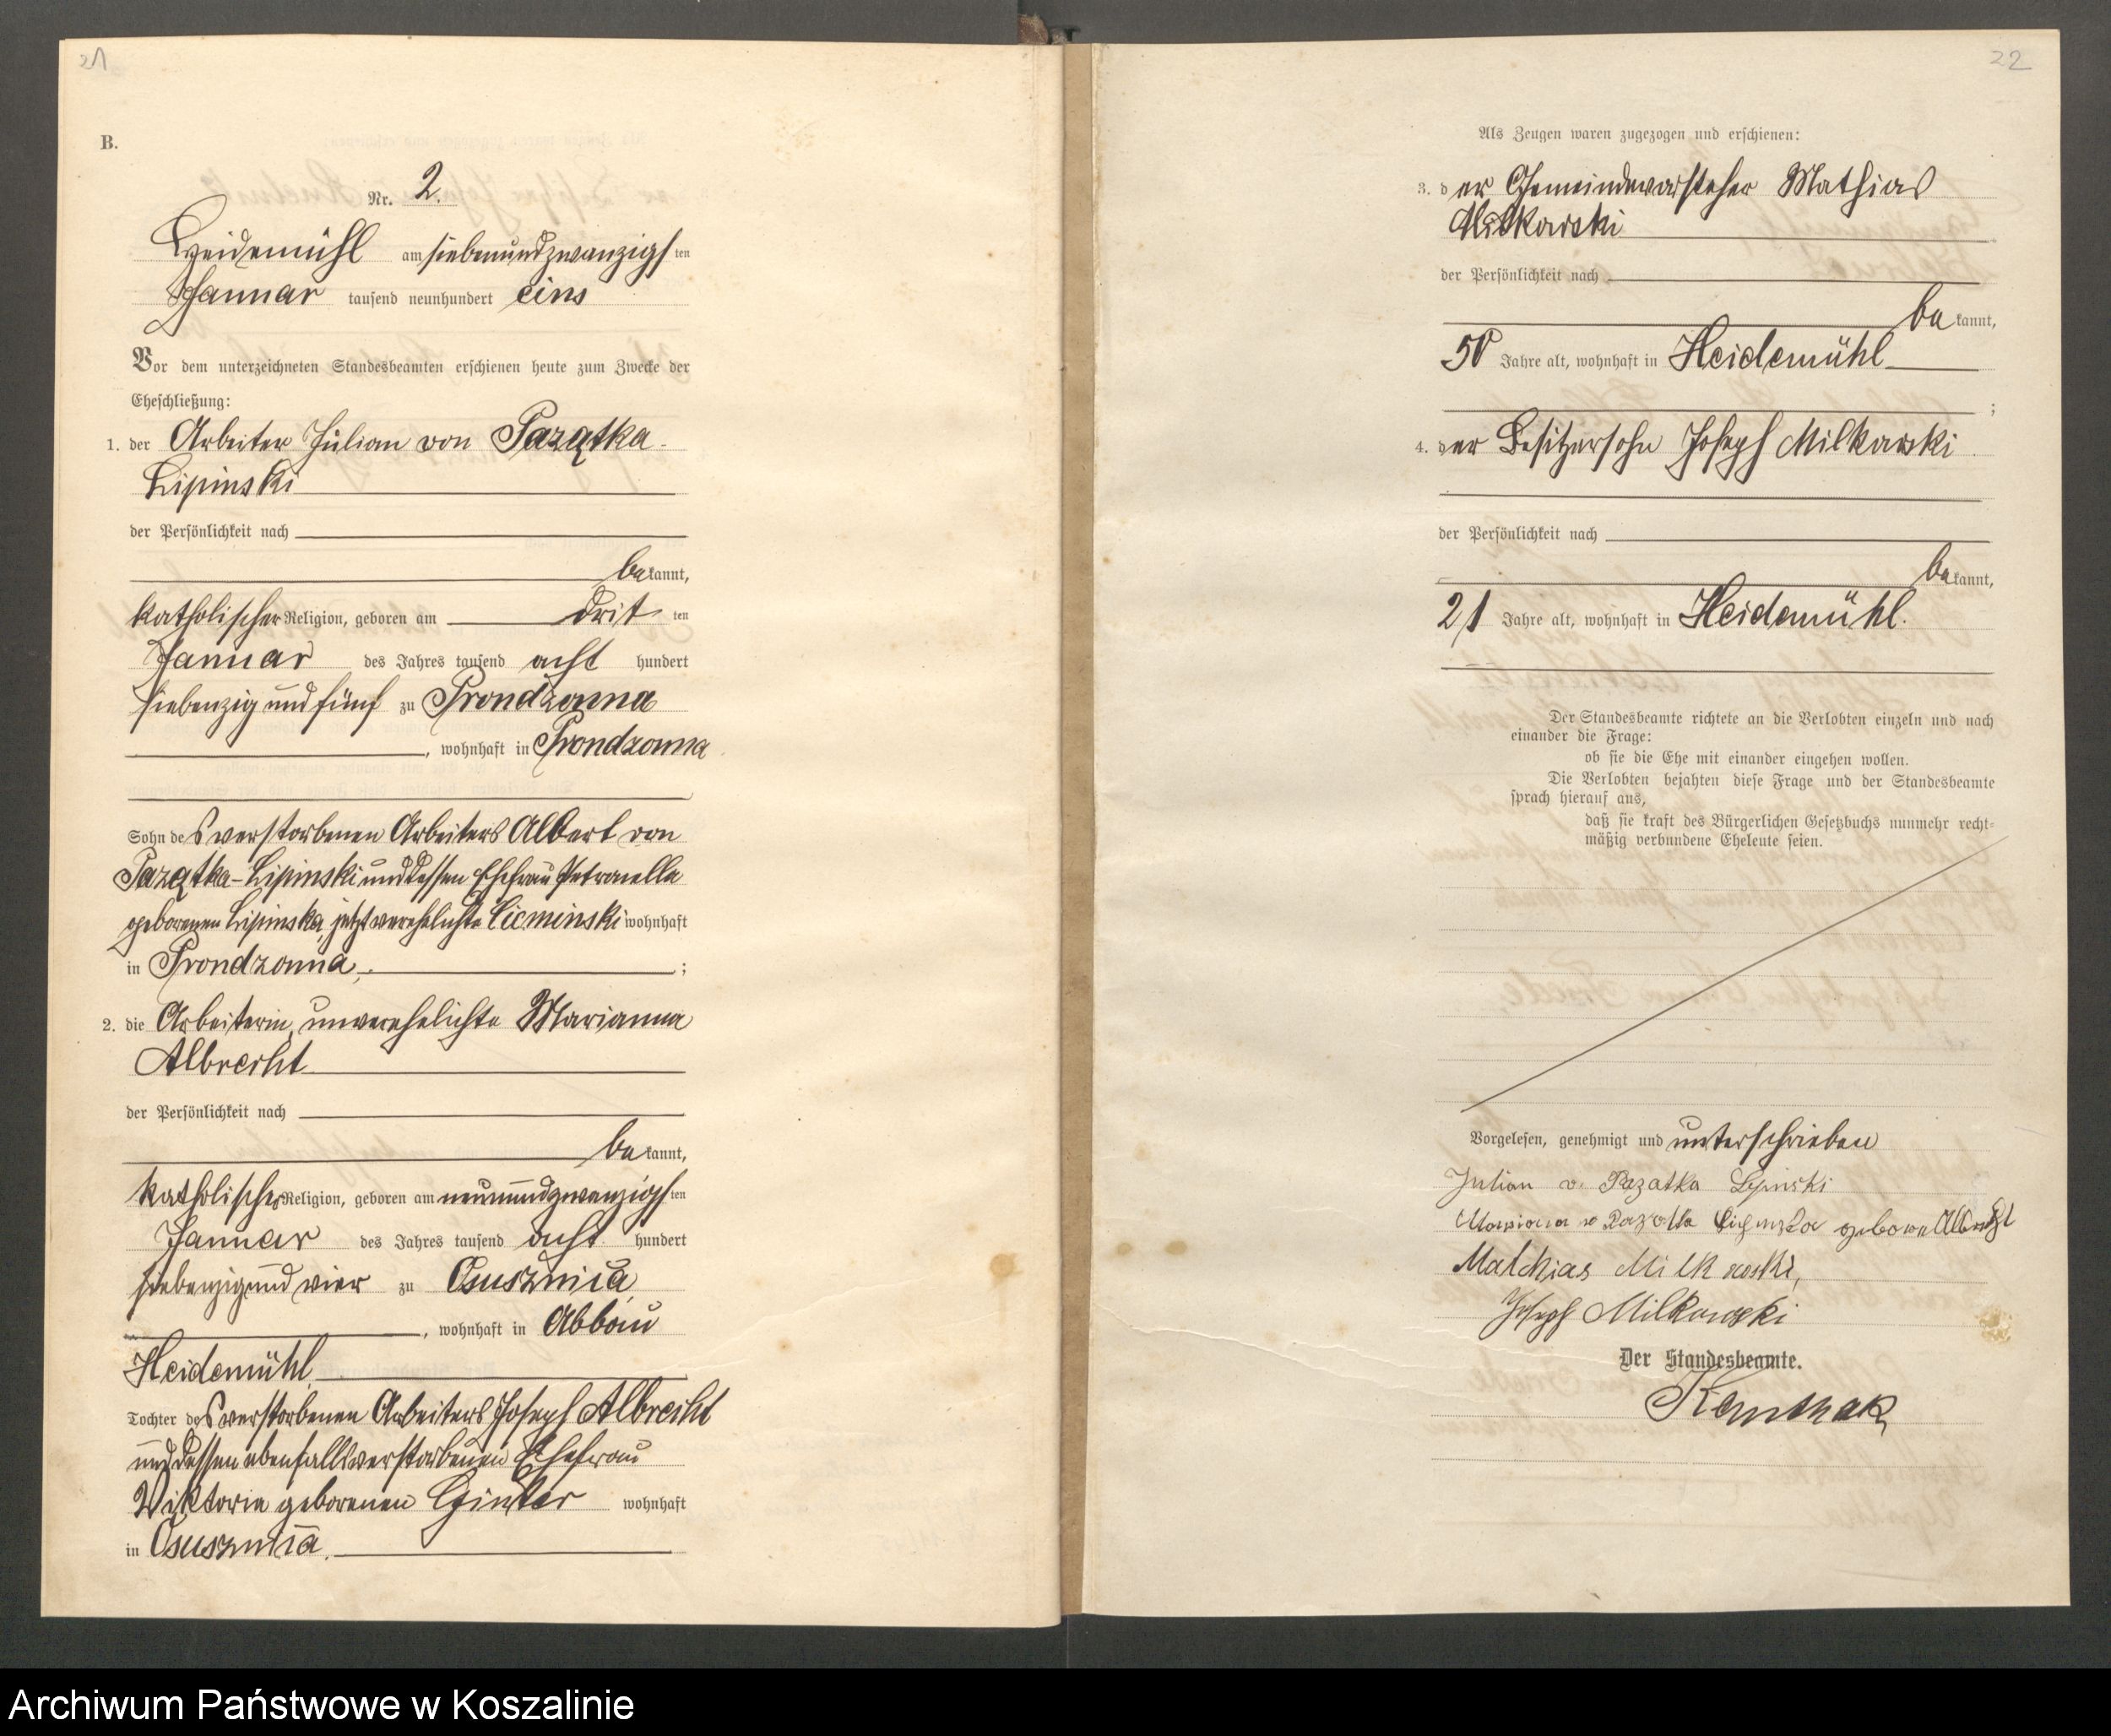 21
B.
Nr. 2.
Heidemühl am siebenundzwanzigsten
Januar tausend neunhundert eins
Vor dem unterzeichneten Standesbeamten erschienen heute zum Zwecke der
Eheschließung:
1. der Arbeiter Julian von Pazątka-
Lipinski
der Persönlichkeit nach
bekannt,
katholischer Religion, geboren am dritten
Januar des Jahres tausend acht hundert
siebenzig und fünf zu Prondzonna
, wohnhaft in Prondzonna
Sohn des verstorbenen Arbeiters Albert von
Pazątka-Lipinski und dessen Ehefrau Petronella
geborenen Lipinska, jetzt verehelichte Cieminski wohnhaft
in Prondzonna. ;
2. die Arbeiterin, unverehelichte Marianna
Albrecht
der Persönlichkeit nach
bekannt,
katholischer Religion, geboren am neunundzwanzigsten
Januar des Jahres tausend acht hundert
siebenzig und vier zu Osusznica
, wohnhaft in Abbau
Heidemühl
Tochter des verstorbenen Arbeiters Joseph Albrecht
und dessen ebenfalls verstorbenen Ehefrau
Viktoria geborenen Ginter wohnhaft
in Osusznica.
22
Als Zeugen waren zugezogen und erschienen:
3. der Gemeindevorsteher Mathias
Milkowski
der Persönlichkeit nach
bekannt,
50 Jahre alt, wohnhaft in Heidemühl
;
4. der Besitzersohn Joseph Milkowski
der Persönlichkeit nach
bekannt,
21 Jahre alt, wohnhaft in Heidemühl.
Der Standesbeamte richtete an die Verlobten einzeln und nach
einander die Frage:
ob sie die Ehe mit einander eingehen wollen.
Die Verlobten bejahten diese Frage und der Standesbeamte
sprach hierauf aus,
daß sie kraft des Bürgerlichen Gesetzbuchs nunmehr recht-
mäßig verbundene Eheleute seien.
Vorgelesen, genehmigt und unterschrieben
Julian v. Pazatka Lipinski
Mathias Milkowski,
Joseph Milkowski
Der Standesbeamte.
Archiwum Państwowe w Koszalinie